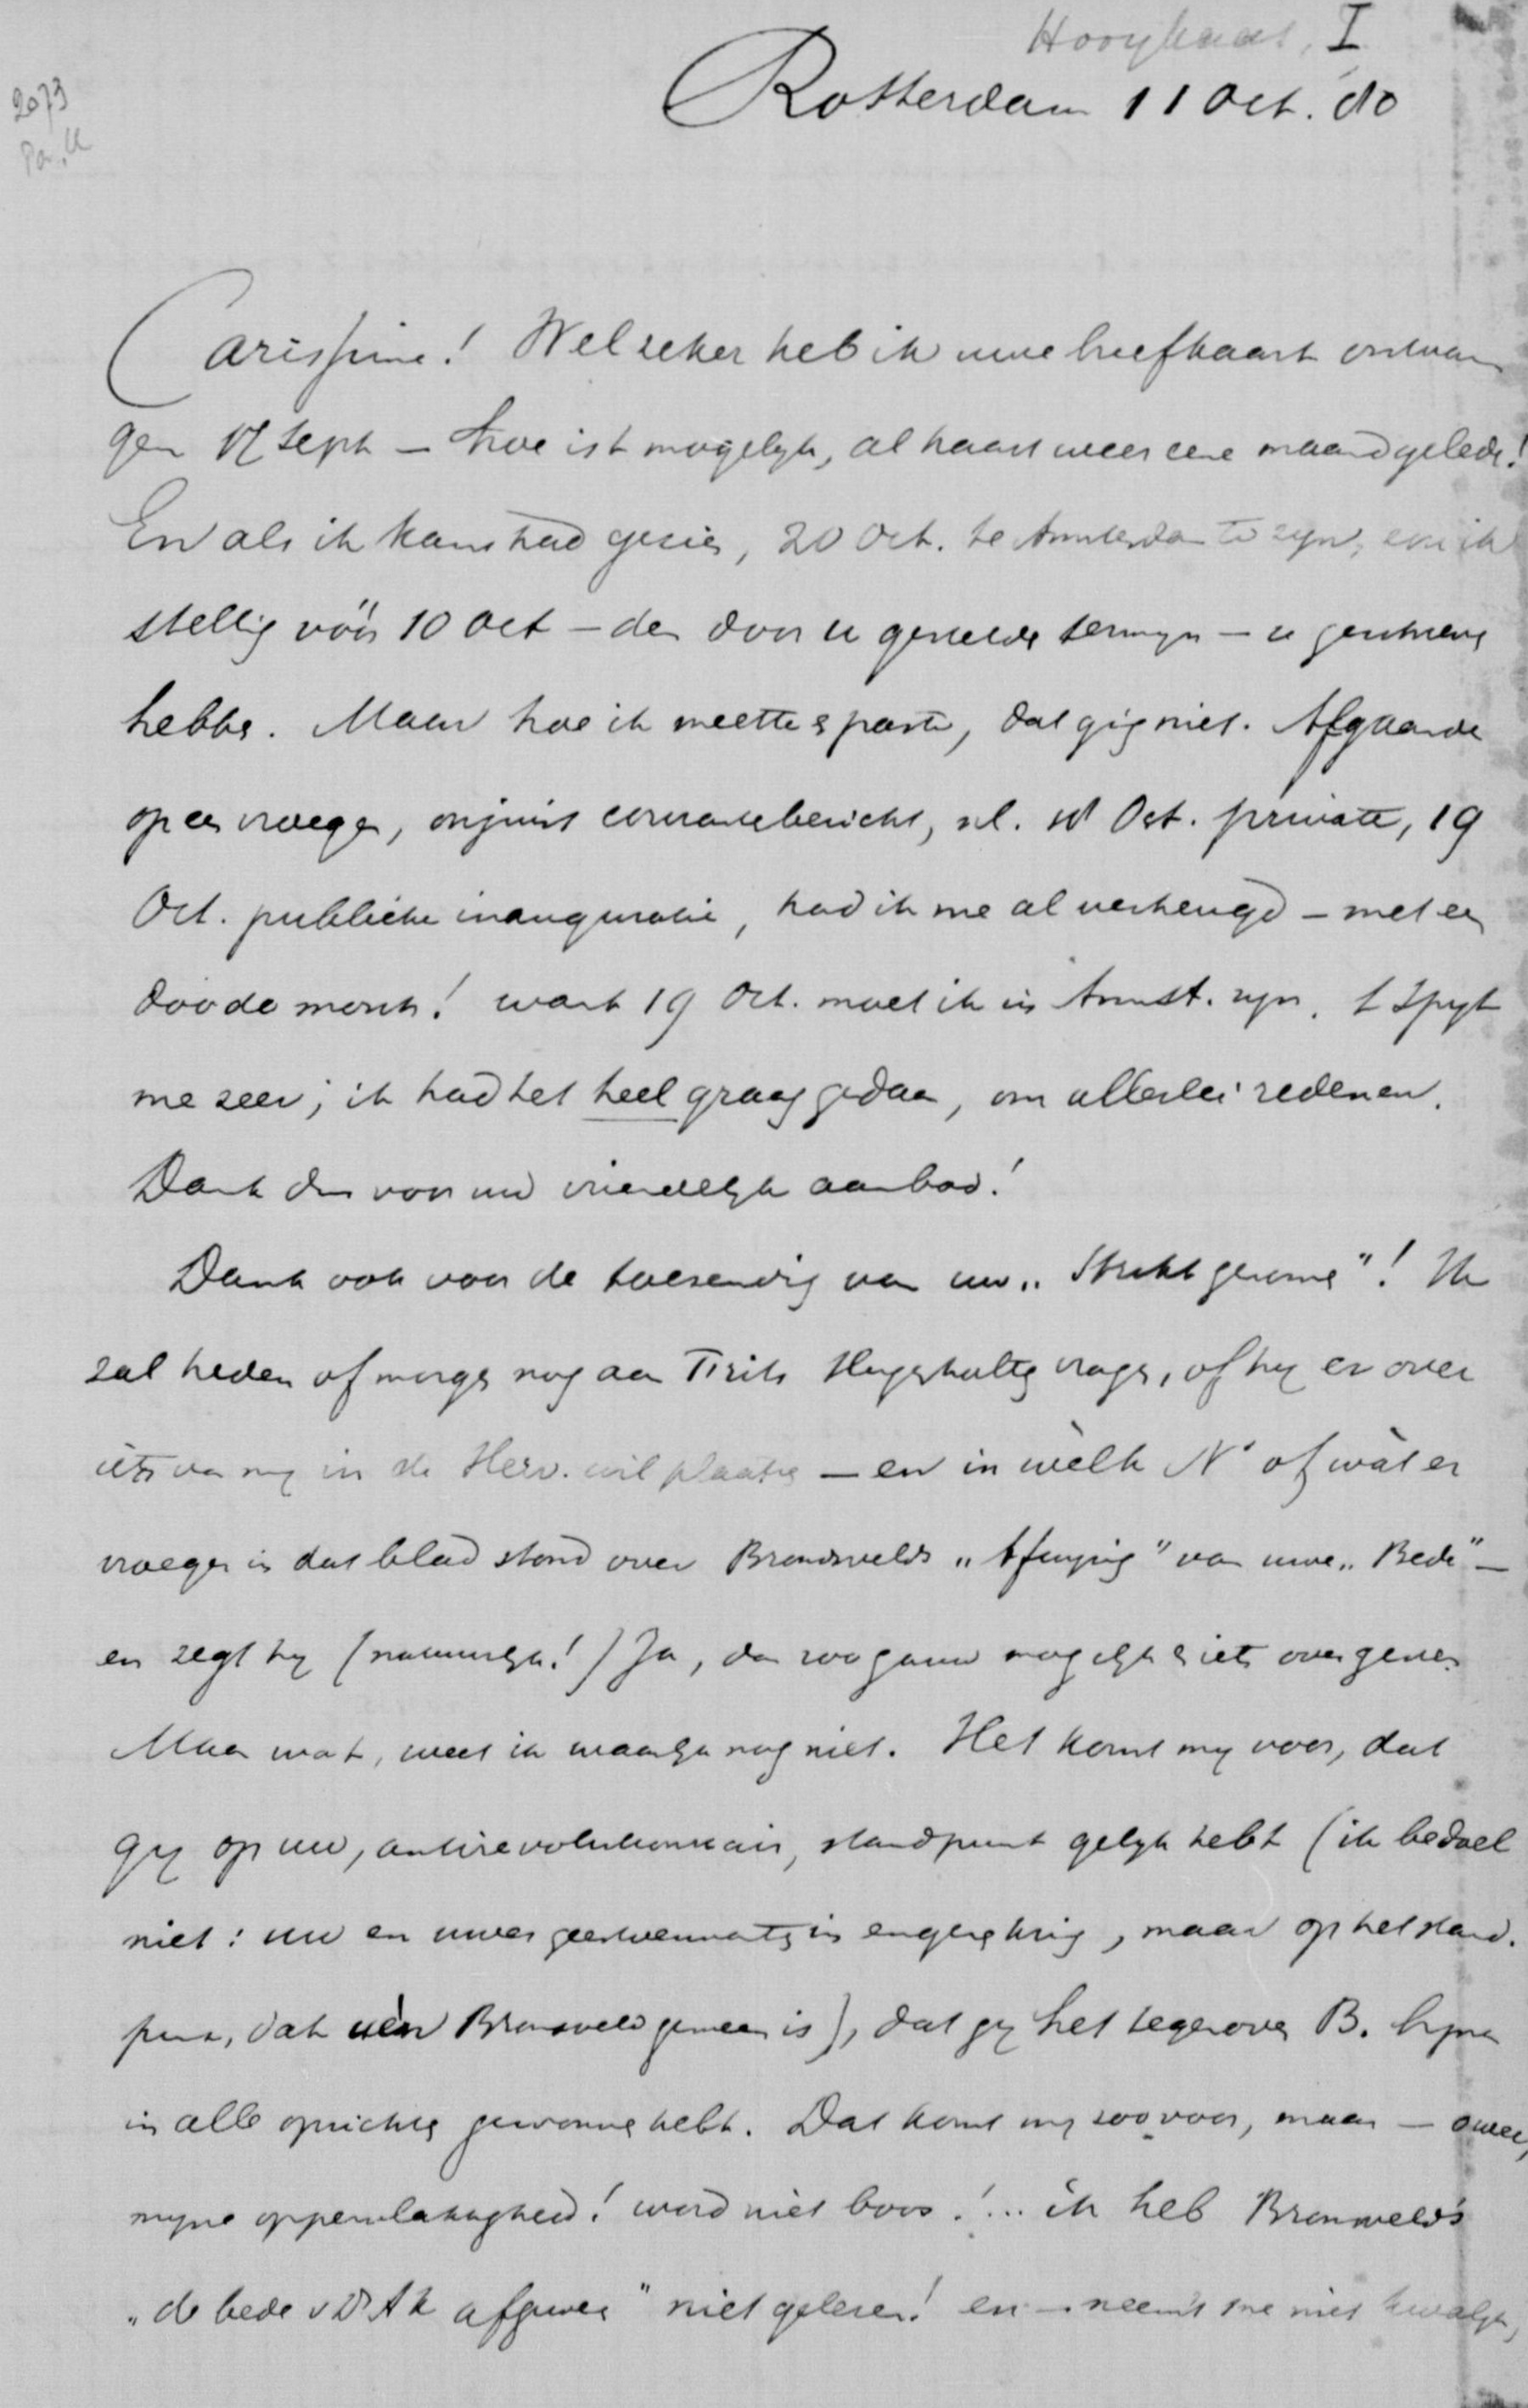 Hooykaas, I
2073
Rotterdam 11 Oct. 80
Carissime! Wel zeker heb ik uwe briefkaart ontvan
gen 17 Sept – hoe is 't mogelyk, al haast weer eene maand geleden!
En als ik kans had gezien, 20 Oct. te Amsterdam te zyn, zou ik
stellig vóór 10 Oct – den door u gestelde termyn – u geschreven
hebben. Maar hoe ik meette & paste, dat ging niet. Afgaande
op een vroeger, onjuist courantebericht, nl. 18 Oct. private, 19
Oct. publieke inauguratie, had ik me al verheugd – met een
doode mosch! want 19 Oct. moet ik in Amst. zyn. 't Spyt
me zeer; ik had het heel graag gedaan, om allerlei redenen.
Dank dus voor uw vriendelyk aanbod!
Dank ook voor de toezending van uw „Strikt genomen"! Ik
zal heden of morgen nog aan Frits Hugenholtz vragen, of hy er over
iets van my in de Herv. wil plaatsen – en in wèlk N° of wàt er
vroeger in dat blad stond over Bronsvelds „Afwyzing" van uwe „Bede" –
en zegt hy (natuurlyk!) Ja, dan zoo gauw mogelyk er iets over geven.
Maar wat, weet ik waarlyk nog niet. Het komt my voor, dat
gy op uw, antirevolutionair, standpunt gelyk hebt (ik bedoel
niet: uw en uwer geestverwanten in engeren kring, maar op het stand-
punt, dat u èn Bronsveld gemeen is), dat gy het tegenover B. byna
in alle opzichten gewonnen hebt. Dat komt my zoo voor, maar – owee,
myne oppervlakkigheid! word niet boos! ... ik heb Bronsveld's
„de bede v Dr A K afgewezen" niet gelezen! en – neem 't me niet kwalyk,